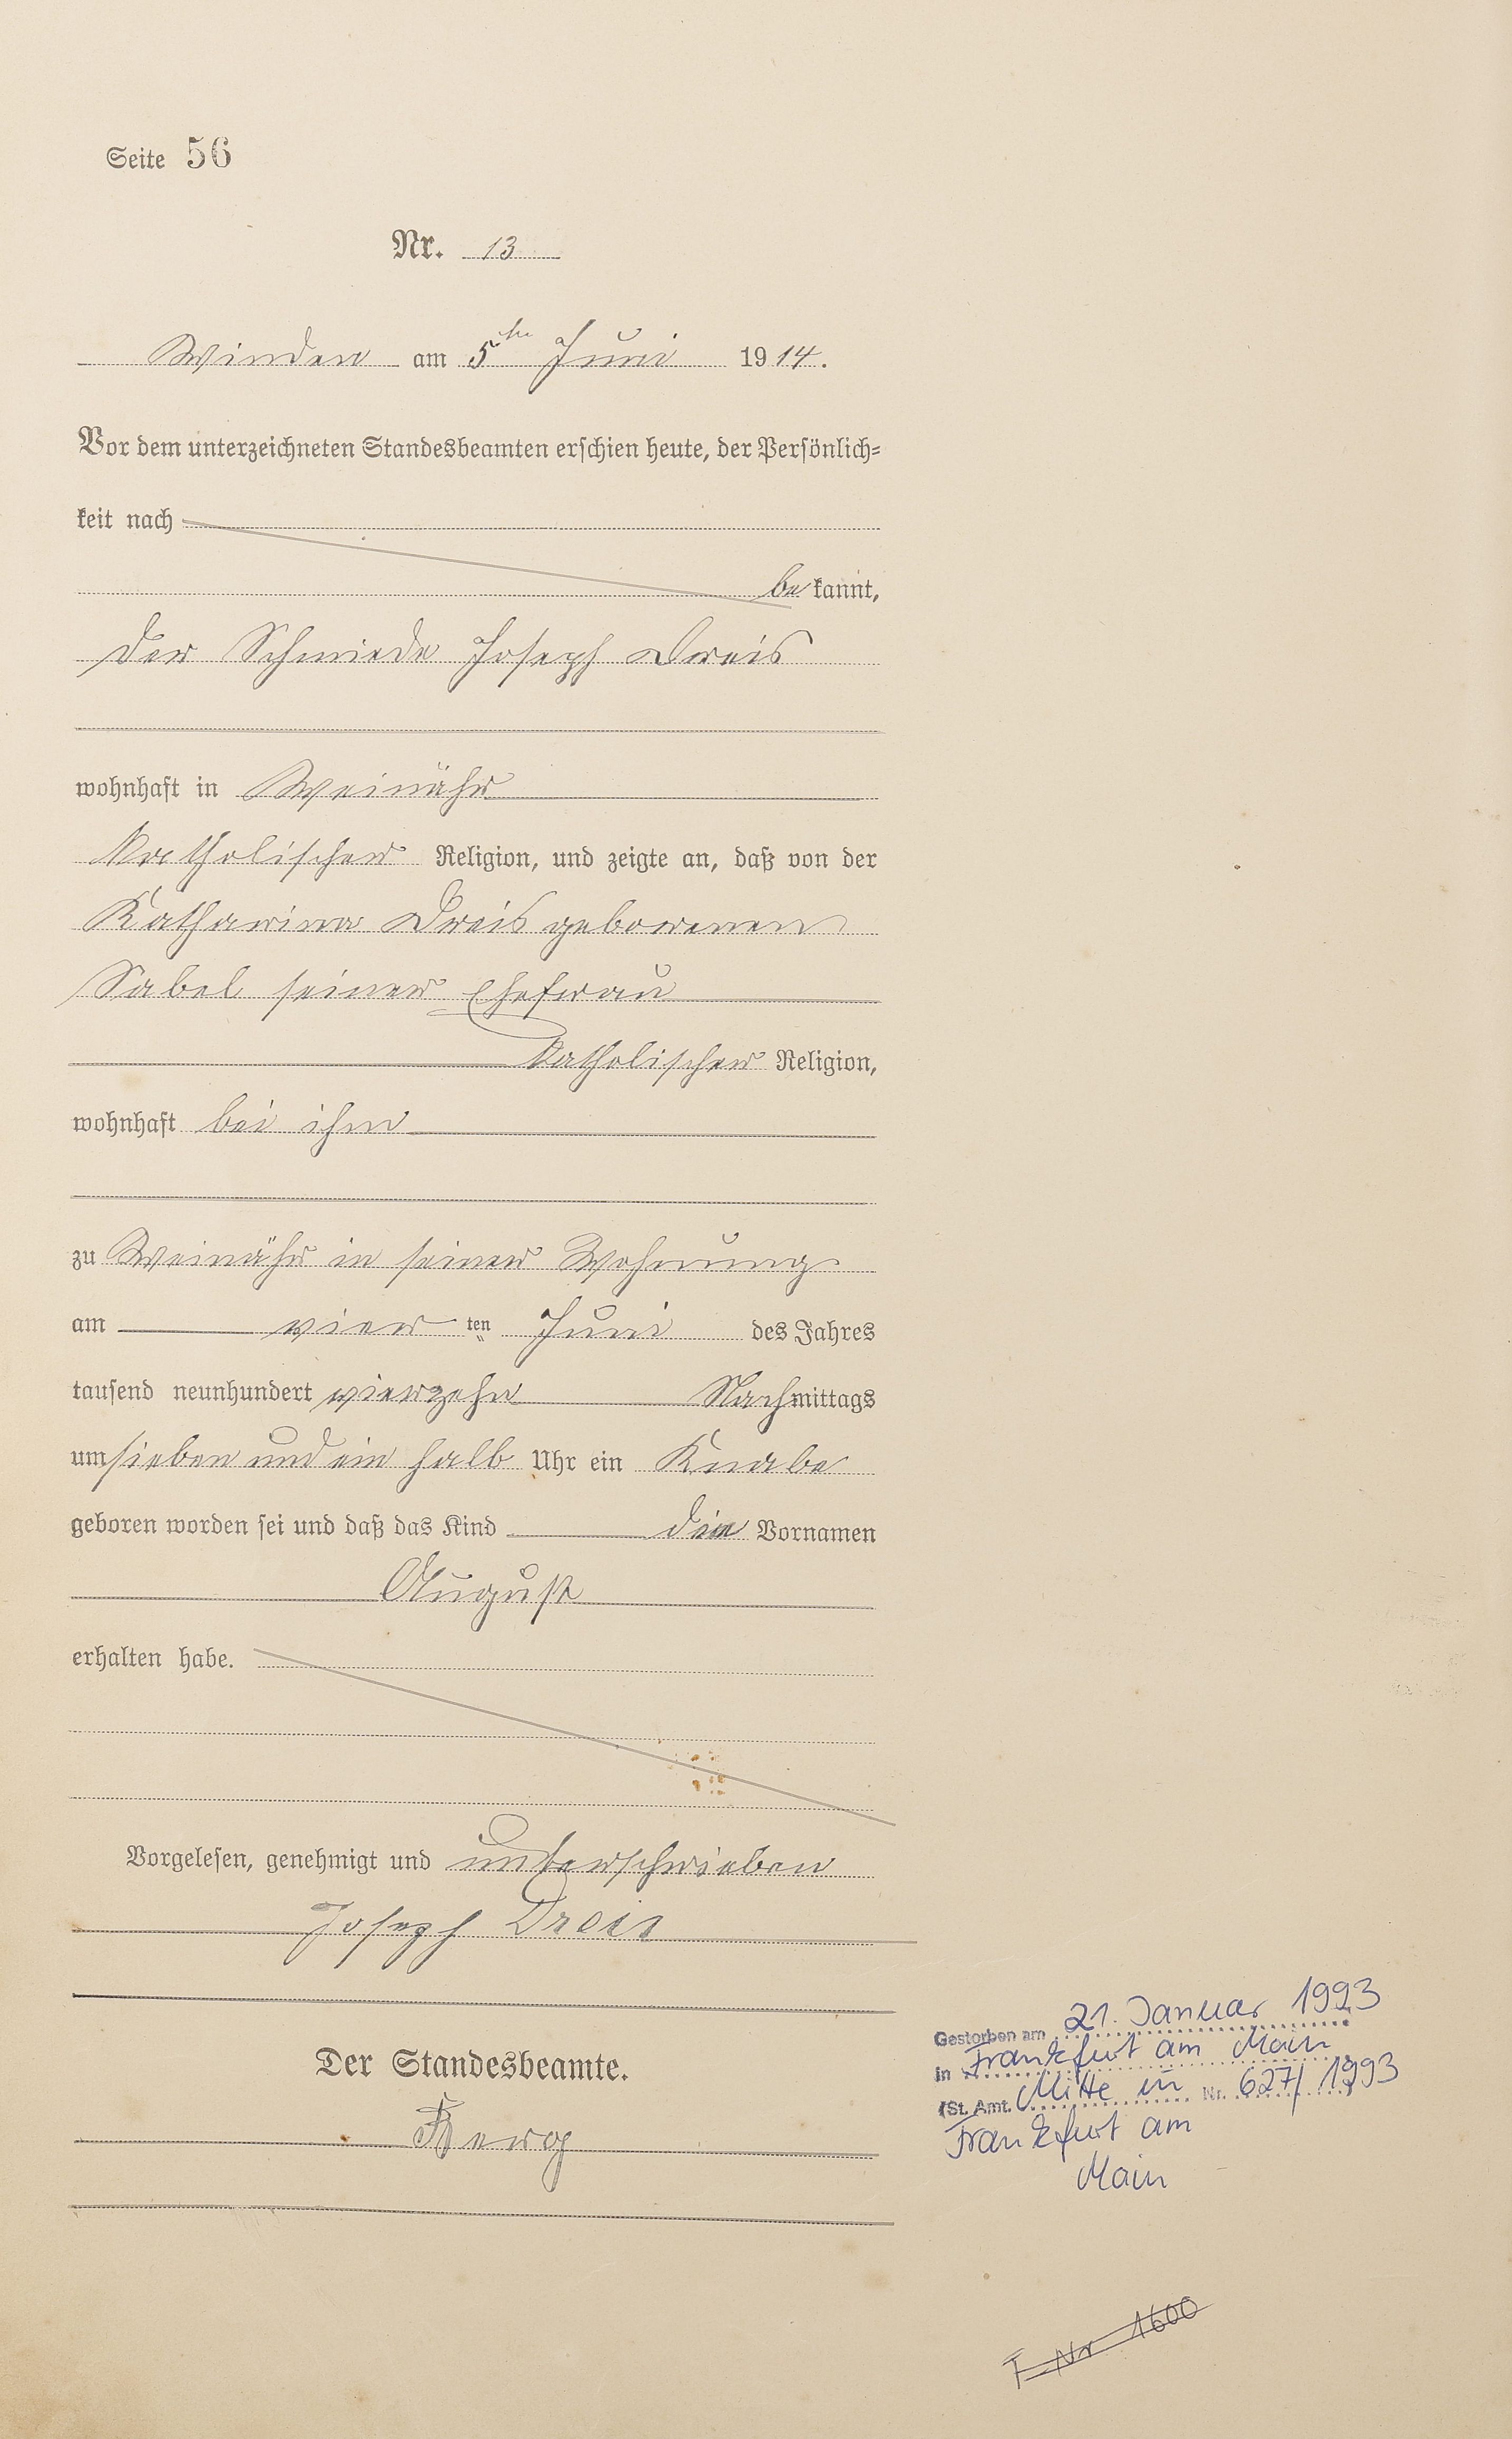 Seite 56
Nr. 13
Winden am 5ten Juni 1914.
Vor dem unterzeichneten Standesbeamten erschien heute, der Persönlich=
keit nach
bekannt,
der Schmiede Joseph Dreis
wohnhaft in Weinähr
katholischer Religion, und zeigte an, daß von der
Katharina Dreis geborenen
Sabel seiner Ehefrau
katholischer Religion,
wohnhaft bei ihm
zu Weinähr in seiner Wohnung
am vierten Juni des Jahres
tausend neunhundert vierzehn Nachmittags
um sieben und ein halb Uhr ein Knabe
geboren worden sei und daß das Kind den Vornamen
August
erhalten habe.
Vorgelesen, genehmigt und unterschrieben
Joseph Dreis
Der Standesbeamte.
Berg
Gestorben am 21. Januar 1993
in Frankfurt am Main
(St. Amt. Mitte in Nr. 627/1993
Frankfurt am
Main
T. Nr 1600